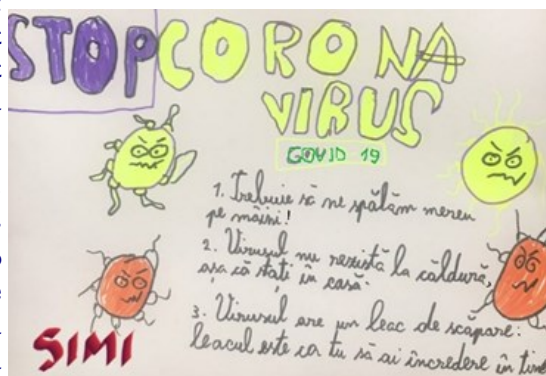 STOP CORONA
VIRUS
COVID 19
1. Trebuie să ne spălăm mereu
pe mâini!
2. Virusul nu rezistă la căldură,
așa că stați în casă.
3. Virusul are un leac de scăpare:
leacul este ca tu să ai încredere în tine
SIMI